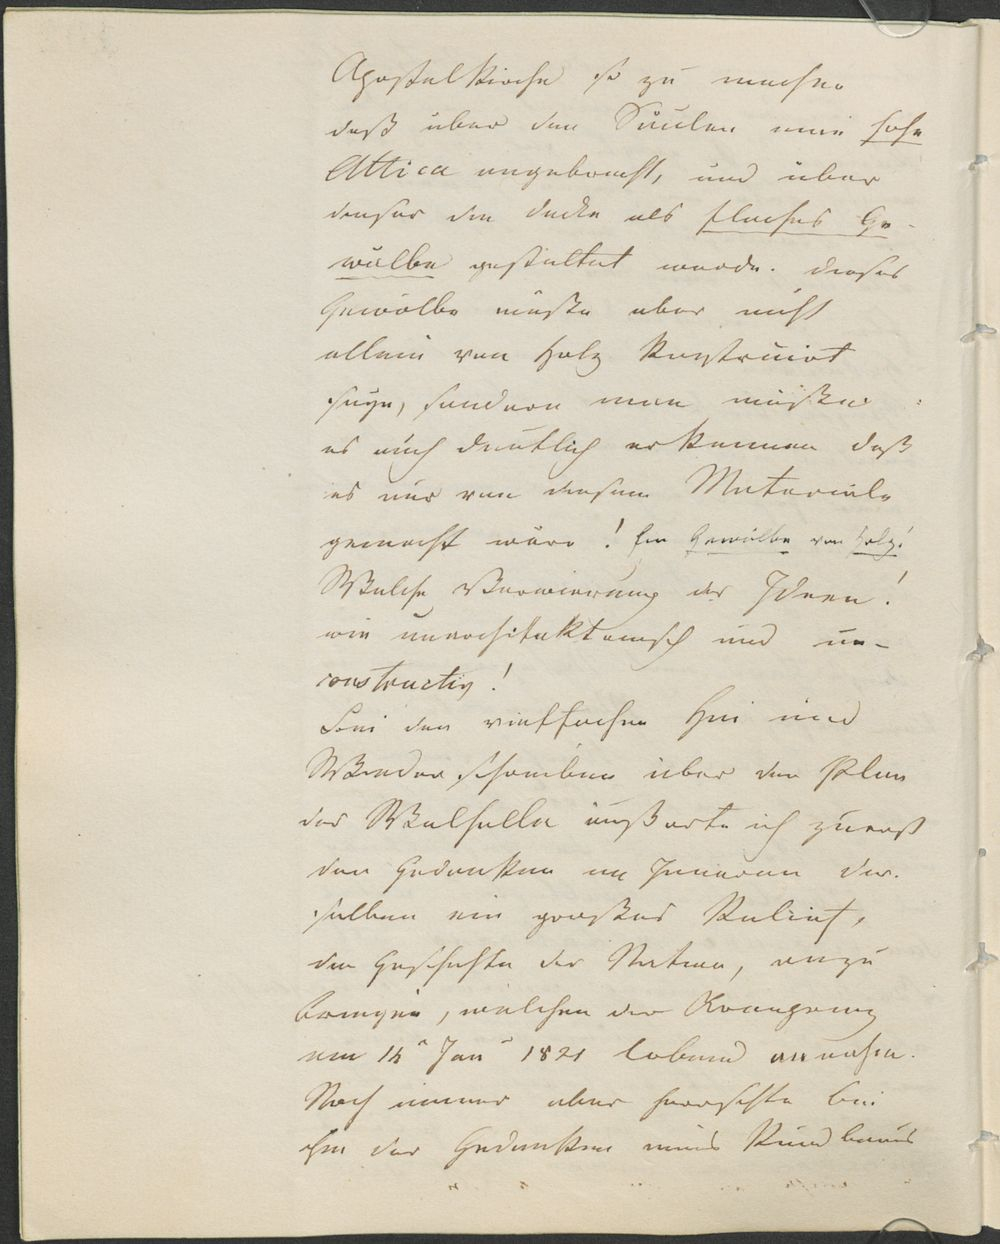 Apostelkirche so zu machen
daß über den Säulen eine hohe
Attica angebracht, und über
dieser die Decke als flaches Ge-
wölbe gestaltet werde. Dieses
Gewölbe müßte aber nicht
allein von Holz konstruirt
seyn, sondern man müßte
es auch deutlich erkennen daß
es nur von diesem Materiale
gemacht wäre! Ein Gewölbe von Holz!
Welche Verwirrung der Ideen!
wie unarchitektonisch und un-
constructiv!
Bei den vielfachen Hin und
Wieder schreiben über den Plan
der Walhalla äußerte ich zuerst
den Gedanken im Inneren der-
selben ein großes Relief,
die Geschichte der Nation, anzu
bringen, welchen der Kronprinz
am 14n Jan 1821 lobend annahm.
Noch immer aber herrschte bei
ihm der Gedanken eines Rundbaues